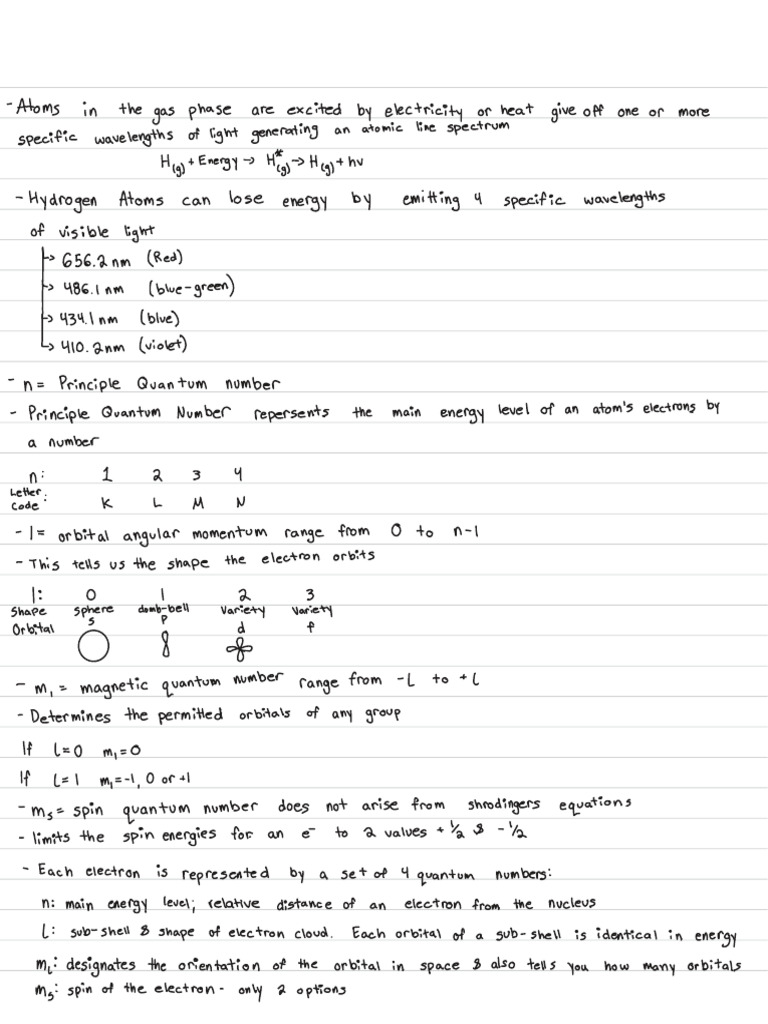 - Atoms in the gas phase are excited by electricity or heat give off one or more
specific wavelengths of light generating an atomic line spectrum
H(g) + Energy → H*(g) → H(g) + hv
- Hydrogen Atoms can lose energy by emitting 4 specific wavelengths
of visible light
→ 656.2 nm (Red)
→ 486.1 nm (blue-green)
→ 434.1 nm (blue)
→ 410.2 nm (violet)
- n = Principle Quantum number
- Principle Quantum Number repersents the main energy level of an atom's electrons by
a number
n: 1 2 3 4
Letter Code: K L M N
- l = orbital angular momentum range from 0 to n-1
- This tells us the shape the electron orbits
l: 0 1 2 3
Shape sphere dumb-bell Variety Variety
Orbital s p d f
- m₁ = magnetic quantum number range from -l to +l
- Determines the permitted orbitals of any group
If l=0 m₁=0
If l=1 m₁=-1, 0 or +1
- ms = spin quantum number does not arise from shrodingers equations
- limits the spin energies for an e⁻ to 2 values + 1/2 & - 1/2
- Each electron is represented by a set of 4 quantum numbers:
n: main energy level; relative distance of an electron from the nucleus
l: sub-shell & shape of electron cloud. Each orbital of a sub-shell is identical in energy
mL: designates the orientation of the orbital in space & also tells you how many orbitals
ms: spin of the electron - only 2 options